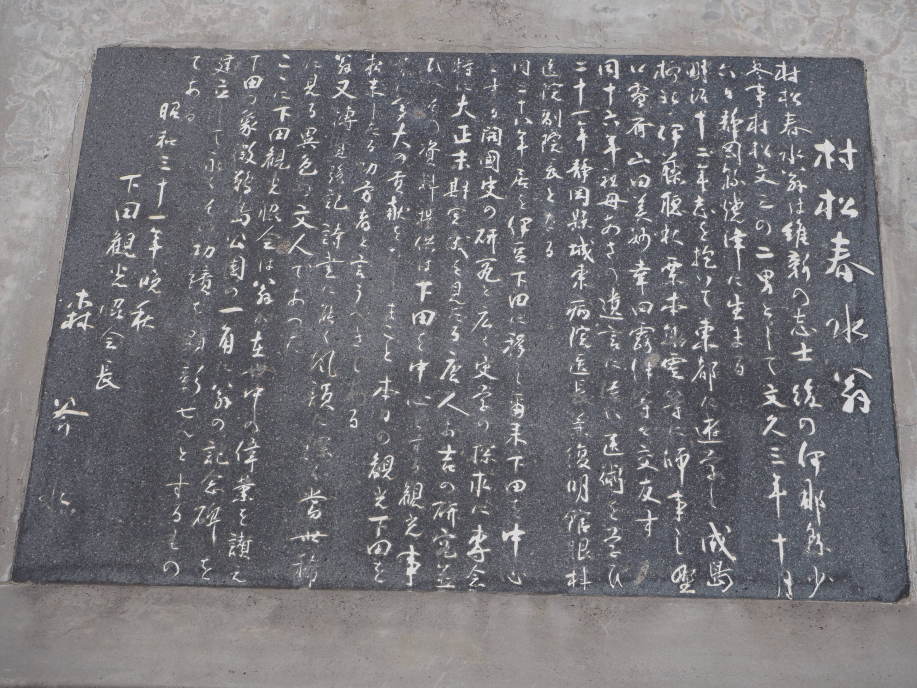 村松春水翁
村松春水翁は維新の志士後の伊那縣少
参事村松文三の二男として文久三年十月
六日静岡縣焼津に生まる
明治十二年志を抱いて東都に遊学し成島
柳北伊藤聴秋栗本鋤雲等に師事し野
口寧斎山田美妙幸田露伴等と交友す
同十六年祖母あさの遺言に従い医術を学び
二十一年静岡縣城東病院医長兼復明館眼科
医院別院長となる
同二十八年居を伊豆下田に移し爾来下田を中心
とする開国史の研究と広く史学の探求に専念
特に大正末期実を見たる唐人お吉の研究並
びにその資料提供は下田を中心とする観光事
多大の貢献をしまこと本日の観光下田を
招来したる功労者と言うべきである
翁又博覧強記詩書に能く風韻に深く当世稀
に見る異色の文人であった
ここに下田観光協会は翁が在世中の偉業を讃え
下田の象徴鵜島公園の一角に翁の記念碑を
建立して永くその功績を顕彰せんとするもの
である
昭和三十一年晩秋
下田観光協会長
森